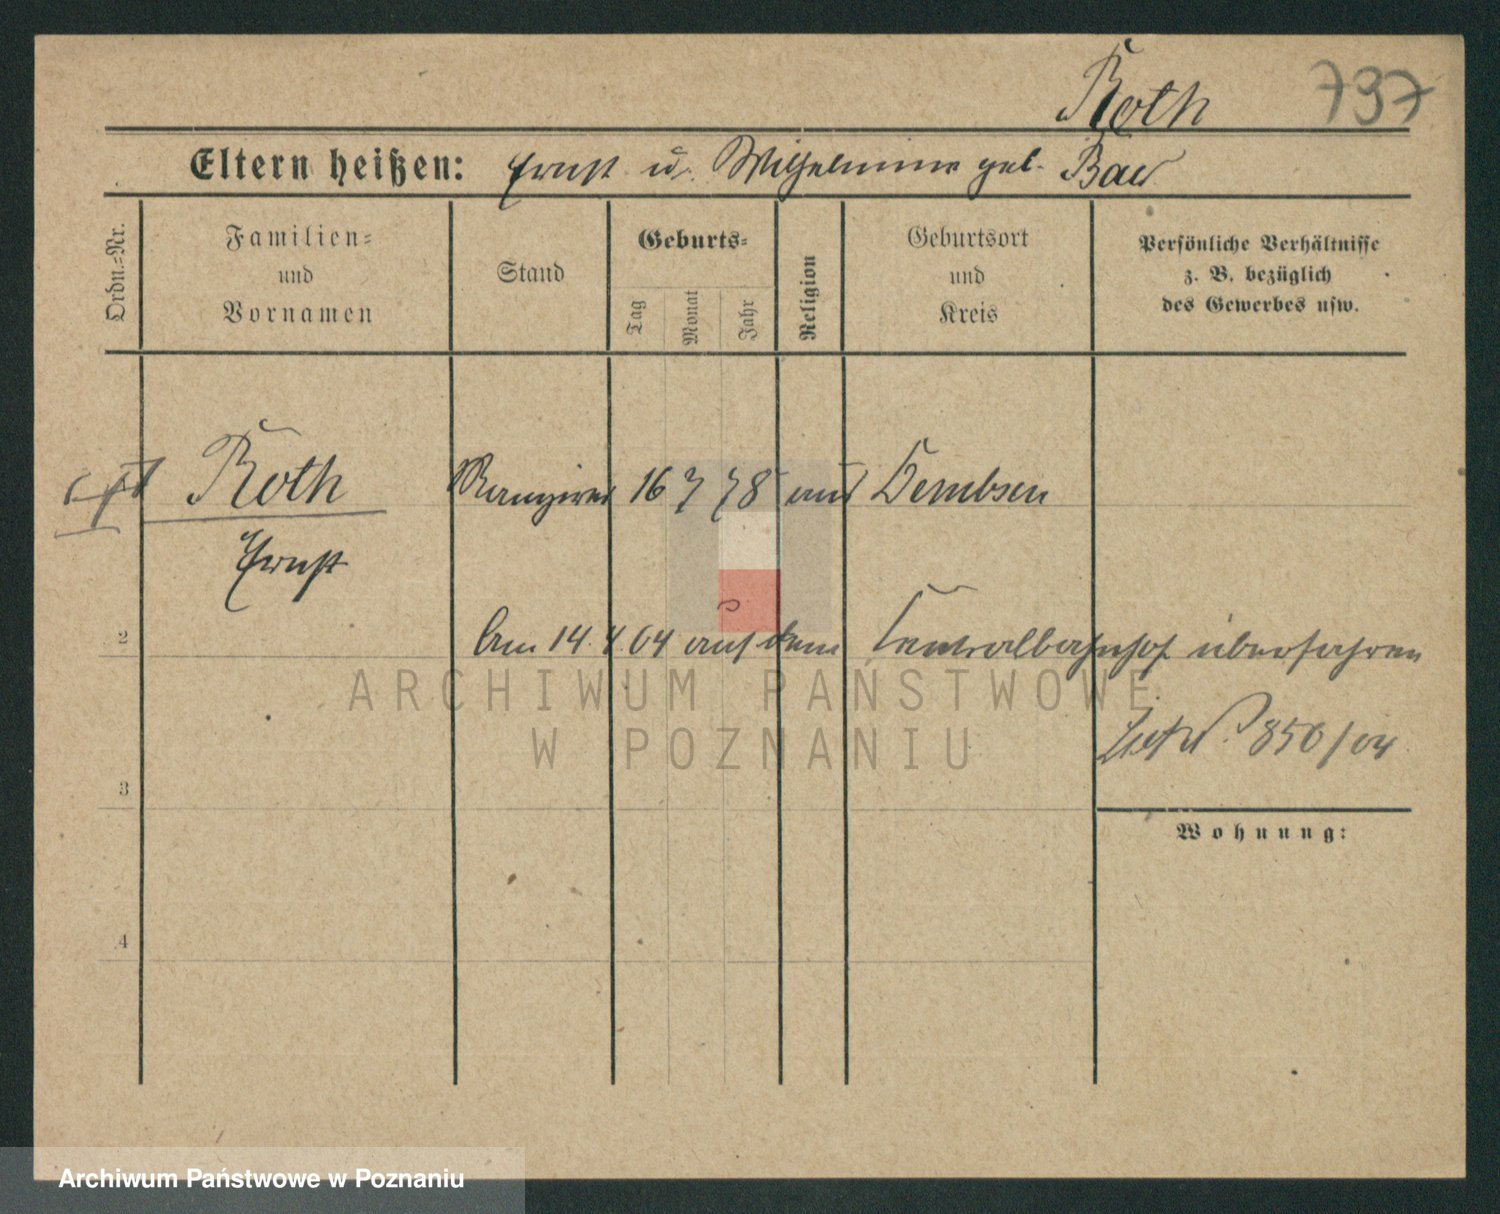 Roth 797
Eltern heißen: Ernst u. Wilhelmine geb.
Ordn.-Nr.
Familien-
und
Vornamen
Stand
Geburts-
Tag
Monat
Jahr
Religion
Geburtsort
und
Kreis
Persönliche Verhältnisse
z. B. bezüglich
des Gewerbes usw.
Roth Rangirer 16 7 78 Dembsen
Ernst
2
Am 14.4.04 auf dem Centralbahnhof überfahren
ARCHIWUM PAŃSTWOWE
W POZNANIU
850/04
3
Wohnung:
4
Archiwum Państwowe w Poznaniu